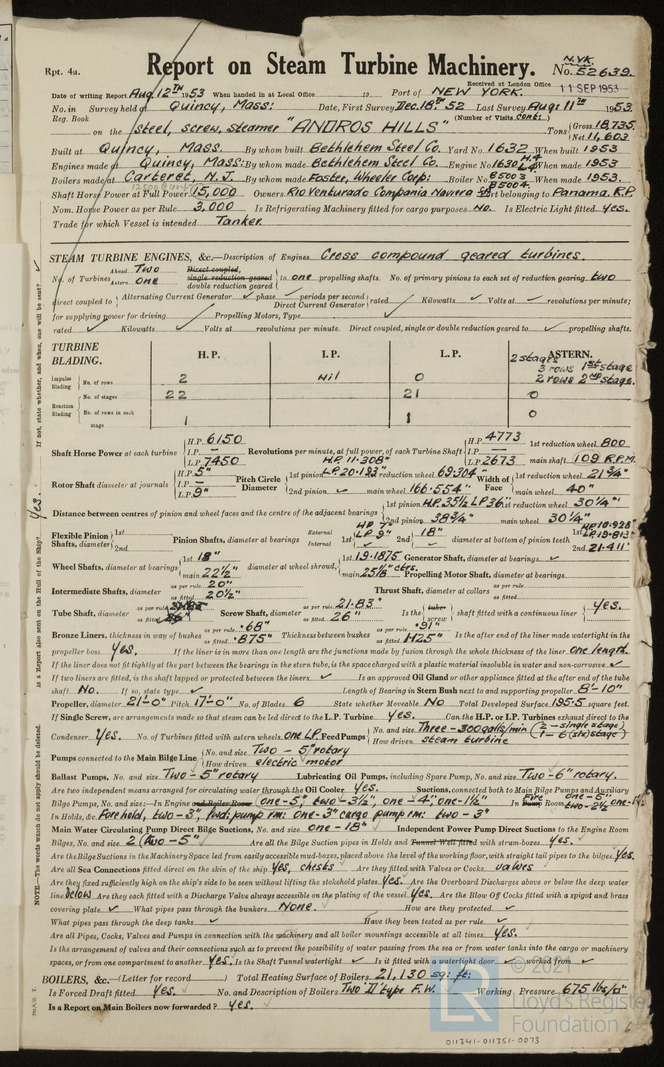 Rpt. 4a.
Report on Steam Turbine Machinery.
N.YK.
No. 52639.
Received at London Office
11 SEP 1953
Date of writing Report Aug 12TH 1953 When handed in at Local Office 19 Port of NEW YORK.
No. in Survey held at Quincy, Mass: Date, First Survey Dec. 18th 52 Last Survey Aug: 11th 1953
Reg. Book (Number of Visits cont:)
on the steel, screw, steamer "ANDROS HILLS" Tons { Gross 18,735. Net 11,603
Built at Quincy, Mass. By whom built Bethlehem Steel Co. Yard No. 1632 When built 1953
Engines made at Quincy, Mass: By whom made Bethlehem Steel Co. Engine No. 1630 When made 1953
Boilers made at Carteret, N. J. By whom made Foster, Wheeler Corp: Boiler No. B5003 B5004. When made 1953.
Shaft Horse Power at Full Power 15,000 Owners Rio Venturado Compania Naviera SA Port belonging to Panama. R.P.
Nom. Horse Power as per Rule 3,000 Is Refrigerating Machinery fitted for cargo purposes No. Is Electric Light fitted Yes.
Trade for which Vessel is intended Tanker.
STEAM TURBINE ENGINES, &c.—Description of Engines Cross compound geared turbines.
No. of Turbines Ahead Two Astern One Direct coupled, single reduction geared double reduction geared } to one propelling shafts. No. of primary pinions to each set of reduction gearing two
direct coupled to { Alternating Current Generator phase periods per second Direct Current Generator } rated Kilowatts Volts at revolutions per minute;
for supplying power for driving Propelling Motors, Type
rated Kilowatts Volts at revolutions per minute. Direct coupled, single or double reduction geared to propelling shafts.
TURBINE BLADING. H.P. I.P. L.P. ASTERN.
2 stages 3 rows 1st stage 2 rows 2nd stage.
Impulse Blading { No. of rows 2 Nil 0
Reaction Blading { No. of stages 22 21 0
No. of rows in each stage 1 1 0
Shaft Horse Power at each turbine { H.P. 6150 I.P. — L.P. 7450 Revolutions per minute, at full power, of each Turbine Shaft { H.P. 4773 I.P. — L.P. 2673 1st reduction wheel 800 main shaft 109 R.P.M.
Rotor Shaft diameter at journals { H.P. 5" I.P. — L.P. 9" Pitch Circle Diameter { 1st pinion H.P. 11.308" L.P. 20.193" 1st reduction wheel 69.304" 2nd pinion main wheel 166.554" Width of Face { 1st reduction wheel 21¾" main wheel 40"
Distance between centres of pinion and wheel faces and the centre of the adjacent bearings { 1st pinion H.P. 35½ L.P. 36 1st reduction wheel 30¼" 2nd pinion 38¾" main wheel 30¼"
Flexible Pinion Shafts, diameter { 1st 2nd Pinion Shafts, diameter at bearings External Internal 1st H.P. 7" L.P. 9" 2nd 18" diameter at bottom of pinion teeth 1st H.P. 10.928" L.P. 19.813" 2nd 21.411"
Wheel Shafts, diameter at bearings { 1st 18" main 22½" diameter at wheel shroud, { 1st 19.1875 main 25⅛" ctrs. Generator Shaft, diameter at bearings Propelling Motor Shaft, diameter at bearings
Intermediate Shafts, diameter as per rule 20" as fitted 20½" Thrust Shaft, diameter at collars as per rule as fitted
Tube Shaft, diameter as per rule as fitted Screw Shaft, diameter as per rule 21.83" as fitted 26" Is the { tube screw } shaft fitted with a continuous liner { Yes.
Bronze Liners, thickness in way of bushes as per rule .68" as fitted .875" Thickness between bushes as per rule .91" as fitted Is the after end of the liner made watertight in the
propeller boss Yes. If the liner is in more than one length are the junctions made by fusion through the whole thickness of the liner one length.
If the liner does not fit tightly at the part between the bearings in the stern tube, is the space charged with a plastic material insoluble in water and non-corrosive
If two liners are fitted, is the shaft lapped or protected between the liners Is an approved Oil Gland or other appliance fitted at the after end of the tube
shaft No. If so, state type Length of Bearing in Stern Bush next to and supporting propeller 8'-10"
Propeller, diameter 21'-0" Pitch 17'-0" No. of Blades 6 State whether Moveable No Total Developed Surface 195.5 square feet.
If Single Screw, are arrangements made so that steam can be led direct to the L.P. Turbine Yes. Can the H.P. or I.P. Turbines exhaust direct to the
Condenser Yes. No. of Turbines fitted with astern wheels one LP Feed Pumps { No. and size Three - 300 galls/min (2 - single stage) (1 - 6 (six) stage) How driven steam turbine
Pumps connected to the Main Bilge Line { No. and size Two - 5" rotary How driven electric motor
Ballast Pumps, No. and size Two - 5" rotary Lubricating Oil Pumps, including Spare Pump, No. and size Two - 6" rotary.
Are two independent means arranged for circulating water through the Oil Cooler Yes. Suctions, connected both to Main Bilge Pumps and Auxiliary
Bilge Pumps, No. and size:—In Engine and Boiler Room (one-5", two-3½", one-4", one-1½" In Pump Room one-5" two-2½"
In Holds, &c. Fore hold, two-3", fwd: pump rm: one-3" cargo pump rm: two-3"
Main Water Circulating Pump Direct Bilge Suctions, No. and size one-18" Independent Power Pump Direct Suctions to the Engine Room
Bilges, No. and size 2 (two-5") Are all the Bilge Suction pipes in Holds and Tunnel Well fitted with strum-boxes Yes.
Are the Bilge Suctions in the Machinery Space led from easily accessible mud-boxes, placed above the level of the working floor, with straight tail pipes to the bilges Yes.
Are all Sea Connections fitted direct on the skin of the ship Yes, chests Are they fitted with Valves or Cocks valves
Are they fixed sufficiently high on the ship's side to be seen without lifting the stokehold plates Yes. Are the Overboard Discharges above or below the deep water
line below Are they each fitted with a Discharge Valve always accessible on the plating of the vessel Yes. Are the Blow Off Cocks fitted with a spigot and brass
covering plate What pipes pass through the bunkers None. How are they protected
What pipes pass through the deep tanks Have they been tested as per rule
Are all Pipes, Cocks, Valves, and Pumps in connection with the machinery and all boiler mountings accessible at all times Yes.
Is the arrangement of valves and their connections such as to prevent the possibility of water passing from the sea or from water tanks into the cargo or machinery
spaces, or from one compartment to another Yes. Is the Shaft Tunnel watertight Is it fitted with a watertight door worked from
BOILERS, &c.—(Letter for record ) Total Heating Surface of Boilers 21,130 sq: ft:
Is Forced Draft fitted Yes. No. and Description of Boilers Two "D" type F.W. Working Pressure 675 lbs/□"
Is a Report on Main Boilers now forwarded? Yes.
NOTE.—The words which do not apply should be deleted.
Is a Report also sent on the Hull of the Ship? Yes.
If not, state whether, and when, one will be sent?
© 2021
Lloyd's Register
Foundation
LR
011341-011351-0073